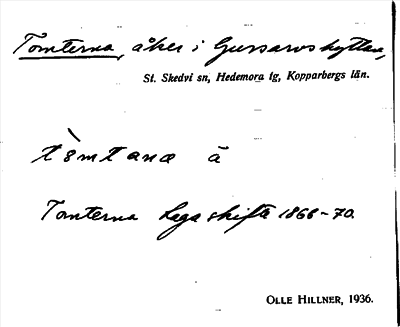 Tomterna, åker i Gussarvshyttan,
St. Skedvi sn, Hedemora tg, Kopparbergs län.
tòmtanæ ä
Tomterna Laga skifte 1866-70.
OLLE HILLNER, 1936.